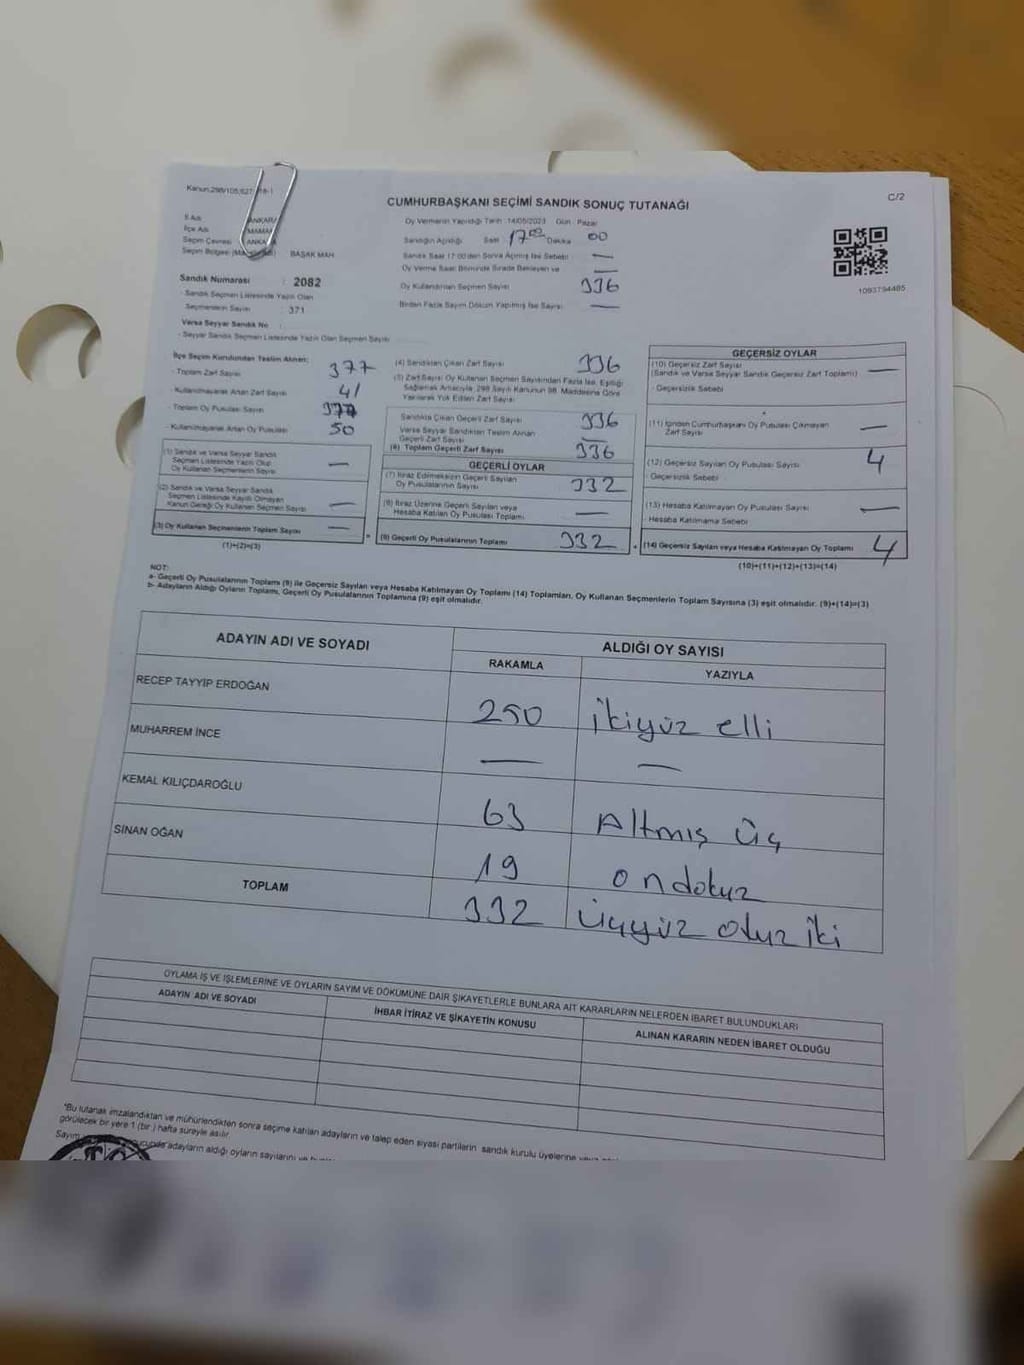 Kanun:298/105;627
C/2
CUMHURBAŞKANI SEÇİMİ SANDIK SONUÇ TUTANAĞI
İl Adı ANKARA
İlçe Adı MAMAK
Seçim Çevresi ANKARA
Seçim Bölgesi BAŞAK MAH.
Oy Vermenin Yapıldığı Tarih :14/05/2023 Gün : Pazar
Sandığın Açıldığı Saat 17 00 Dakika 00
Sandık Saat 17:00'den Sonra Açılmış İse Sebebi : —
Oy Verme Saati Bitiminde Sırada Bekleyen ve —
Oy Kullandırılan Seçmen Sayısı 336
Birden Fazla Sayım Döküm Yapılmış İse Sayısı : —
1093794485
Sandık Numarası : 2082
- Sandık Seçmen Listesinde Yazılı Olan
Seçmenlerin Sayısı : 371
Varsa Seyyar Sandık No :
- Seyyar Sandık Seçmen Listesinde Yazılı Olan Seçmen Sayısı
İlçe Seçim Kurulundan Teslim Alınan:
- Toplam Zarf Sayısı 377
- Kullanılmayarak Artan Zarf Sayısı 41
- Toplam Oy Pusulası Sayısı
- Kullanılmayarak Artan Oy Pusulası 50
(1) Sandık ve Varsa Seyyar Sandık
Seçmen Listesinde Yazılı Olup
Oy Kullanan Seçmenlerin Sayısı —
(2) Sandık ve Varsa Seyyar Sandık
Seçmen Listesinde Kayıtlı Olmayan
Kanun Gereği Oy Kullanan Seçmen Sayısı —
(3) Oy Kullanan Seçmenlerin Toplam Sayısı —
(1)+(2)=(3)
(4) Sandıktan Çıkan Zarf Sayısı 336
(5) Zarf Sayısı Oy Kullanan Seçmen Sayısından Fazla İse, Eşitliği
Sağlamak Amacıyla, 298 Sayılı Kanunun 98. Maddesine Göre
Yakılarak Yok Edilen Zarf Sayısı
Sandıkta Çıkan Geçerli Zarf Sayısı 336
Varsa Seyyar Sandıktan Teslim Alınan
Geçerli Zarf Sayısı —
(6) Toplam Geçerli Zarf Sayısı 336
GEÇERLİ OYLAR
(7) İtiraz Edilmeksizin Geçerli Sayılan
Oy Pusulalarının Sayısı 332
(8) İtiraz Üzerine Geçerli Sayılan veya
Hesaba Katılan Oy Pusulası Toplamı —
(9) Geçerli Oy Pusulalarının Toplamı 332
GEÇERSİZ OYLAR
(10) Geçersiz Zarf Sayısı
(Sandık ve Varsa Seyyar Sandık Geçersiz Zarf Toplamı) —
- Geçersizlik Sebebi
(11) İçinden Cumhurbaşkanı Oy Pusulası Çıkmayan
Zarf Sayısı —
(12) Geçersiz Sayılan Oy Pusulası Sayısı 4
- Geçersizlik Sebebi
(13) Hesaba Katılmayan Oy Pusulası Sayısı —
- Hesaba Katılmama Sebebi
(14) Geçersiz Sayılan veya Hesaba Katılmayan Oy Toplamı 4
(10)+(11)+(12)+(13)=(14)
NOT:
a- Geçerli Oy Pusulalarının Toplamı (9) ile Geçersiz Sayılan veya Hesaba Katılmayan Oy Toplamı (14) Toplamları, Oy Kullanan Seçmenlerin Toplam Sayısına (3) eşit olmalıdır. (9)+(14)=(3)
b- Adayların Aldığı Oyların Toplamı, Geçerli Oy Pusulalarının Toplamına (9) eşit olmalıdır.
ADAYIN ADI VE SOYADI
ALDIĞI OY SAYISI
RAKAMLA YAZIYLA
RECEP TAYYIP ERDOĞAN 250 ikiyüz elli
MUHARREM İNCE — —
KEMAL KILIÇDAROĞLU 63 Altmış üç
SİNAN OĞAN 19 ondokuz
TOPLAM 332 üçyüz otuz iki
OYLAMA İŞ VE İŞLEMLERİNE VE OYLARIN SAYIM VE DÖKÜMÜNE DAİR ŞİKAYETLERLE BUNLARA AİT KARARLARIN NELERDEN İBARET BULUNDUKLARI
ADAYIN ADI VE SOYADI
İHBAR İTİRAZ VE ŞİKAYETİN KONUSU
ALINAN KARARIN NEDEN İBARET OLDUĞU
*Bu tutanak imzalandıktan ve mühürlendikten sonra seçime katılan adayların ve talep eden siyasi partilerin sandık kurulu üyelerine veya
görülecek bir yere 1 (bir ) hafta süreyle asılır.
Sayım adayların aldığı oyların sayılarını